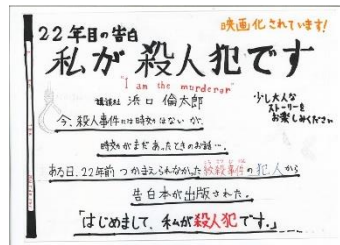 22年目の告白
映画化されています!
私が殺人犯です
"I am the murderer"
講談社 浜口 倫太郎
少し大人な
ストーリーを
お楽しみください
今、殺人事件には時効はないが、
時効がまだあったときのお話…。
ある日、22年前つかまえられなかった絞殺事件の犯人から
告白本が出版された。
「はじめまして、私が殺人犯です。」